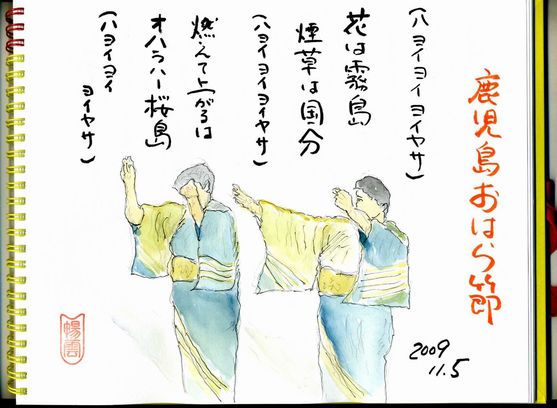 鹿児島おはら節
(ハヨイヨイヨイヤサ)
花は霧島
煙草は国分
(ハヨイヨイヨイヤサ)
燃えて上がるは
オハラハー桜島
(ハヨイヨイ
ヨイヤサ)
2009
11.5
暢雲